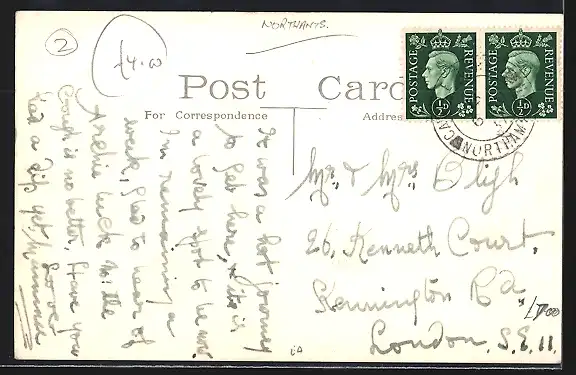 2
£4.00
NORTHANTS.
Post Card
For Correspondence
Address
POSTAGE REVENUE
½D
POSTAGE REVENUE
½D
NORTHAM
It was a hot journey
to get here, & it is
a lovely spot to be now.
I'm remaining a
week, Glad to hear of
Archie luck. My the
Cough is no better. Have you
had a dip yet,
Love
Mr & Mrs Bligh
26, Kenneth Court,
Kennington Rd
London, S.E.11.